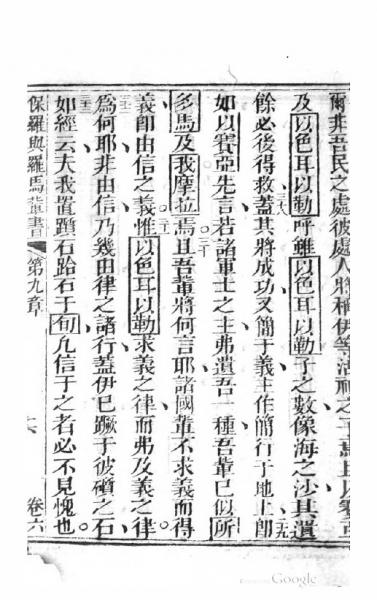 爾非吾民之處彼處人將稱伊等活神之子焉且以賽亞
及以色耳以勒呼雖以色耳以勒子之數像海之沙其遺
二八
餘必後得救蓋其將成功又簡于義主作簡行于地上卽
二九
如以賽亞先言若諸軍士之主弗遺吾一種吾輩已似所
多馬及我摩拉焉且吾輩將何言耶諸國輩不求義而得
三十
義卽由信之義惟以色耳以勒求義之律而弗及義之律
三一
爲何耶非由信乃幾由律之諸行蓋伊已蹶于彼礩之石
三二
如經云夫我置躓石跲石于旬凡信于之者必不見愧也
三三
保羅與羅馬輩書
第九章
卷六
Google